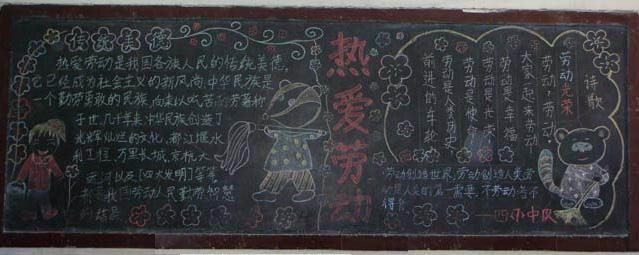 传统美德
热爱劳动是我国各族人民的传统美德,
它已经成为社会主义的新风尚,中华民族是
一个勤劳勇敢的民族,向来以吃苦耐劳著称
于世,几千年来中华民族创造了
光辉灿烂的文化,都江堰水
利工程,万里长城,京杭大
运河以及[四大发明]等等,
都是我国劳动人民勤劳智慧
的结晶
热爱劳动
诗歌
劳动光荣
劳动,劳动,
大家一起来劳动
劳动是幸福
劳动是光荣
劳动是使命
劳动是人类历史
前进的车轮
劳动创造世界,劳动创造人类,劳
动是人类的第一需要,不劳动者不
得食
——四(1)中队